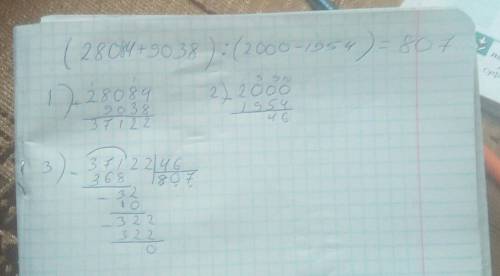 (28084+9038):(2000-1954)=807
1) 28084
9038
37122
2) - 2000
1954
46
3) - 37122 | 46
368 | 807
- 32
10
- 322
322
0